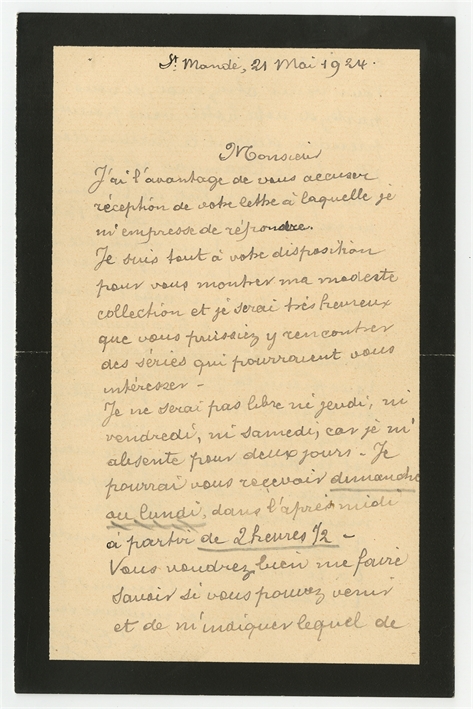 St Mandé, 21 Mai 1924.
Monsieur
J'ai l'avantage de vous accuser
réception de votre lettre à laquelle je
m'empresse de répondre.
Je suis tout à votre disposition
pour vous montrer ma modeste
collection et je serai très heureux
que vous puissiez y rencontrer
des séries qui pourraient vous
intéresser -
Je ne serai pas libre ni jeudi, ni
vendredi, ni samedi, car je m'
absente pour deux jours - Je
pourrai vous recevoir dimanche
ou lundi, dans l'après midi
à partir de 2 heures 1/2 -
Vous voudrez bien me faire
savoir si vous pouvez venir
et de m'indiquer lequel de